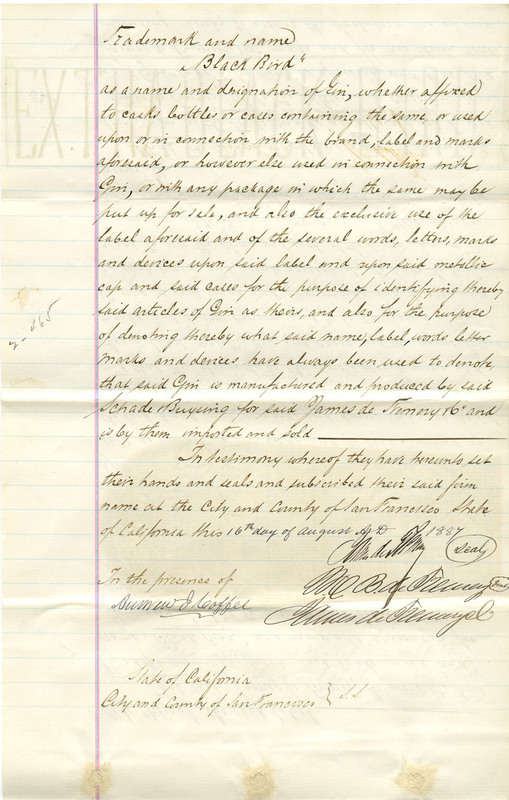 Trademark and name
"Black Bird"
as a name and designation of Gin, whether affixed
to casks bottles or cases containing the same or used
upon or in connection with the brand, label and marks
aforesaid, or however else used in connection with
Gin, or with any package in which the same may be
put up for sale, and also the exclusive use of the
label aforesaid and of the several words, letters, marks
and devices upon said label and upon said metallic
cap and said cases for the purpose of identifying thereby
said articles of Gin as theirs, and also for the purpose
of denoting thereby what said name, label, words letter
marks and devices have always been used to denote,
that said Gin is manufactured and produced by said
Schade & Buysing for said James de Fremery & Co and
is by them imported and sold
In testimony whereof they have hereunto set
their hands and seals and subscribed their said firm
name at the City and County of San Francisco State
of California this 16th day of August A.D. 1887
James de Fremery (Seal)
In the presence of
de Fremery (Seal)
James de Fremery & Co
State of California
City and County of San Francisco } S.S.
2-565